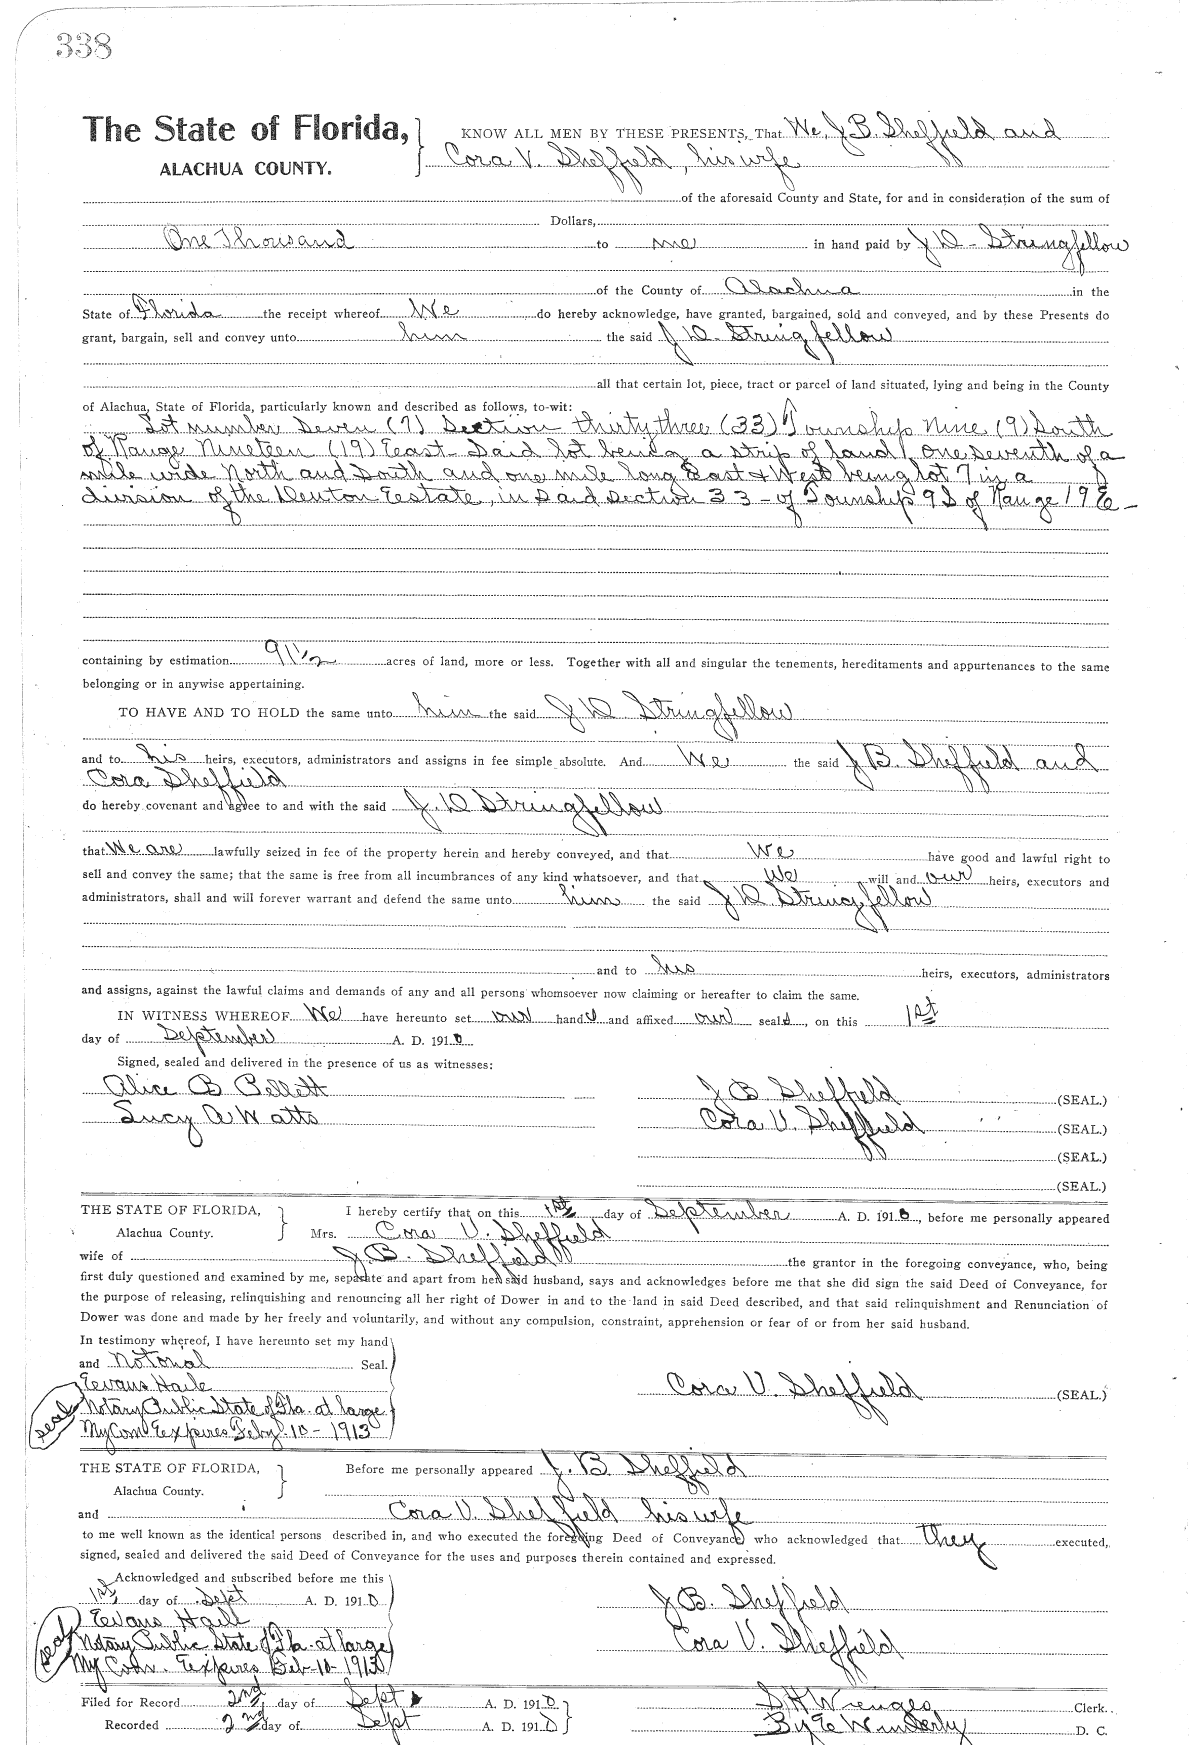 338
The State of Florida,
ALACHUA COUNTY.
KNOW ALL MEN BY THESE PRESENTS, That We, J B. Sheffield and
Cora V. Sheffield, his wife
of the aforesaid County and State, for and in consideration of the sum of
Dollars,
One Thousand to me in hand paid by J D - Stringfellow
of the County of Alachua in the
State of Florida the receipt whereof We do hereby acknowledge, have granted, bargained, sold and conveyed, and by these Presents do
grant, bargain, sell and convey unto him the said J D. Stringfellow
all that certain lot, piece, tract or parcel of land situated, lying and being in the County
of Alachua, State of Florida, particularly known and described as follows, to-wit:
Lot number Seven (7) Section thirty three (33) Township Nine (9) South
of Range Nineteen (19) East - Said lot being a strip of land, one seventh of a
mile wide North and South and one mile long East & West being lot 7 in a
division of the Estate, in said section 33 - of Township 9 S of Range 19 E -
containing by estimation 91 1/2 acres of land, more or less. Together with all and singular the tenements, hereditaments and appurtenances to the same
belonging or in anywise appertaining.
TO HAVE AND TO HOLD the same unto him the said J D Stringfellow
and to his heirs, executors, administrators and assigns in fee simple absolute. And We the said J B. Sheffield and
Cora Sheffield
do hereby covenant and agree to and with the said J. D Stringfellow
that We are lawfully seized in fee of the property herein and hereby conveyed, and that We have good and lawful right to
sell and convey the same; that the same is free from all incumbrances of any kind whatsoever, and that We will and our heirs, executors and
administrators, shall and will forever warrant and defend the same unto him the said J D Stringfellow
and to his heirs, executors, administrators
and assigns, against the lawful claims and demands of any and all persons whomsoever now claiming or hereafter to claim the same.
IN WITNESS WHEREOF We have hereunto set our hands and affixed our seals, on this 1st
day of September A. D. 1910
Signed, sealed and delivered in the presence of us as witnesses:
Alice B Pellett J B Sheffield (SEAL.)
Lucy A Watts Cora V. Sheffield (SEAL.)
(SEAL.)
(SEAL.)
THE STATE OF FLORIDA, I hereby certify that on this 1st day of September A. D. 1910, before me personally appeared
Alachua County. Mrs. Cora V. Sheffield
wife of J. B. Sheffield the grantor in the foregoing conveyance, who, being
first duly questioned and examined by me, separate and apart from her said husband, says and acknowledges before me that she did sign the said Deed of Conveyance, for
the purpose of releasing, relinquishing and renouncing all her right of Dower in and to the land in said Deed described, and that said relinquishment and Renunciation of
Dower was done and made by her freely and voluntarily, and without any compulsion, constraint, apprehension or fear of or from her said husband.
In testimony whereof, I have hereunto set my hand
and Notorial Seal.
Evans Haile Cora V. Sheffield (SEAL.)
seal Notary Public State of Fla. at large
My Com Expires Feby. 10 - 1913
THE STATE OF FLORIDA, Before me personally appeared J. B. Sheffield
Alachua County.
and Cora V. Sheffield his wife
to me well known as the identical persons described in, and who executed the foregoing Deed of Conveyance, who acknowledged that they executed,
signed, sealed and delivered the said Deed of Conveyance for the uses and purposes therein contained and expressed.
Acknowledged and subscribed before me this
1st day of Sept A. D. 1910 J B. Sheffield
Evans Haile
seal Notary Public State of Fla. at large Cora V. Sheffield
My Com. Expires Feb-10-1913
Filed for Record 2nd day of Sept A. D. 1910 S H Wienges Clerk.
Recorded 2nd day of Sept A. D. 1910 By E Wimberly D. C.